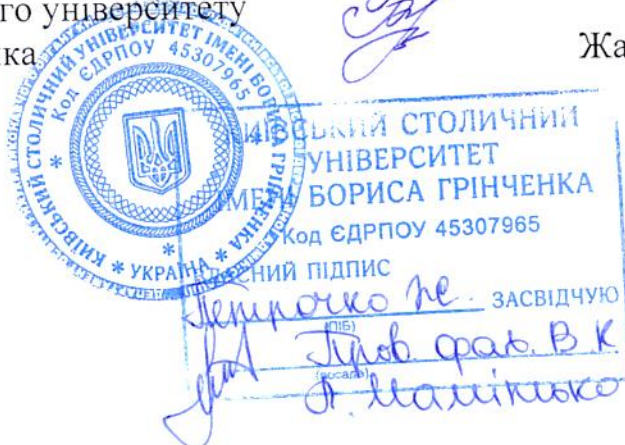 го університету
нка
Жа
КИЇВСЬКИЙ СТОЛИЧНИЙ УНІВЕРСИТЕТ ІМЕНІ БОРИСА ГРІНЧЕНКА * УКРАЇНА *
Код ЄДРПОУ 45307965
КИЇВСЬКИЙ СТОЛИЧНИЙ
УНІВЕРСИТЕТ
ІМЕНІ БОРИСА ГРІНЧЕНКА
Код ЄДРПОУ 45307965
ВЛАСНИЙ ПІДПИС
Петрочко Ж. ЗАСВІДЧУЮ
(ПІБ)
Пров. фах. В К
(посада)